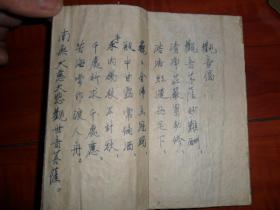 觀音偈
觀音菩薩妙難酬
清淨莊嚴累劫修
浩浩紅蓮安足下
灣灣秋月鎖眉頭
瓶中甘露常徧洒
手內楊枝不計秋
千處祈求千處應
苦海常作渡人舟
南無大慈大悲觀世音菩薩。